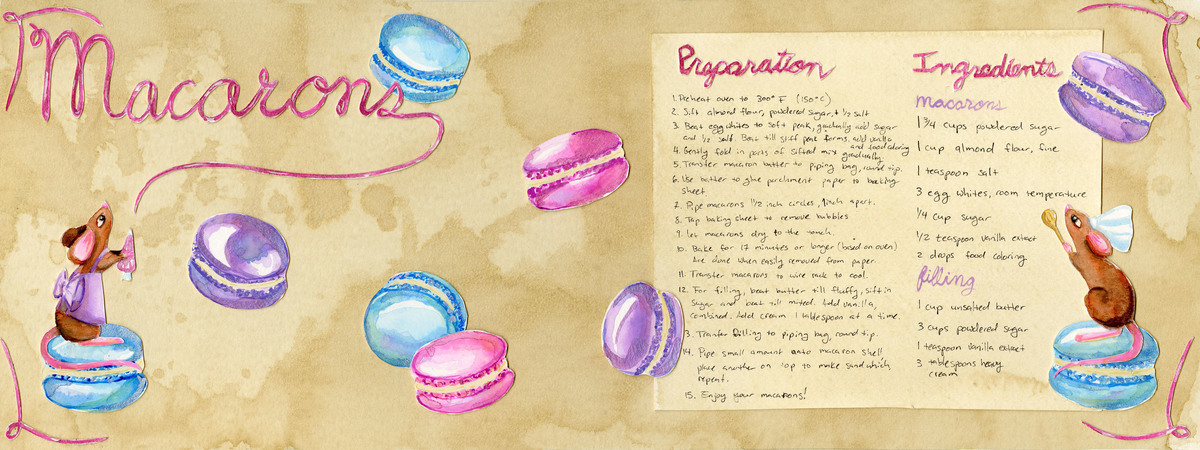 Macarons
Preparation
1. Preheat oven to 300° F (150°C)
2. Sift almond flour, powdered sugar, + 1/2 salt
3. Beat egg whites to soft peak, gradually add sugar
and 1/2 salt. Beat till stiff peak forms. add vanilla
and food coloring
4. Gently fold in parts of sifted mix gradually.
5. Transfer macaron batter to piping bag, round tip.
6. Use batter to glue parchment paper to baking
sheet
7. Pipe macarons 1 1/2 inch circles, 1 inch apart.
8. Tap baking sheet to remove bubbles
9. let macarons dry to the touch.
10. Bake for 17 minutes or longer (based on oven)
Are done when easily removed from paper.
11. Transfer macarons to wire rack to cool.
12. For filling, beat butter till fluffy, sift in
sugar and beat till mixed. Add vanilla,
combined. Add cream 1 tablespoon at a time.
13. Transfer filling to piping bag, round tip.
14. Pipe small amount onto macaron shell,
place another on top to make sandwhich,
repeat.
15. Enjoy your macarons!
Ingredients
macarons
1 3/4 cups powdered sugar
1 cup almond flour, fine
1 teaspoon salt
3 egg whites, room temperature
1/4 cup sugar
1/2 teaspoon vanilla extract
2 drops food coloring
filling
1 cup unsalted butter
3 cups powdered sugar
1 teaspoon vanilla extract
3 tablespoons heavy
cream